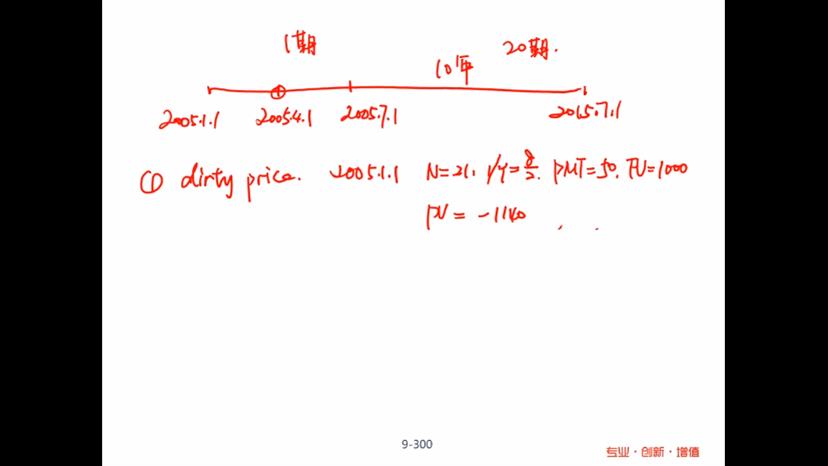 1期 20期.
10年
2005.1.1 2005.4.1 2005.7.1 2015.7.1
① dirty price. 2005.1.1 N=21. I/Y=8/2. PMT=50. FV=1000
PV = -1140
9-300
专业·创新·增值